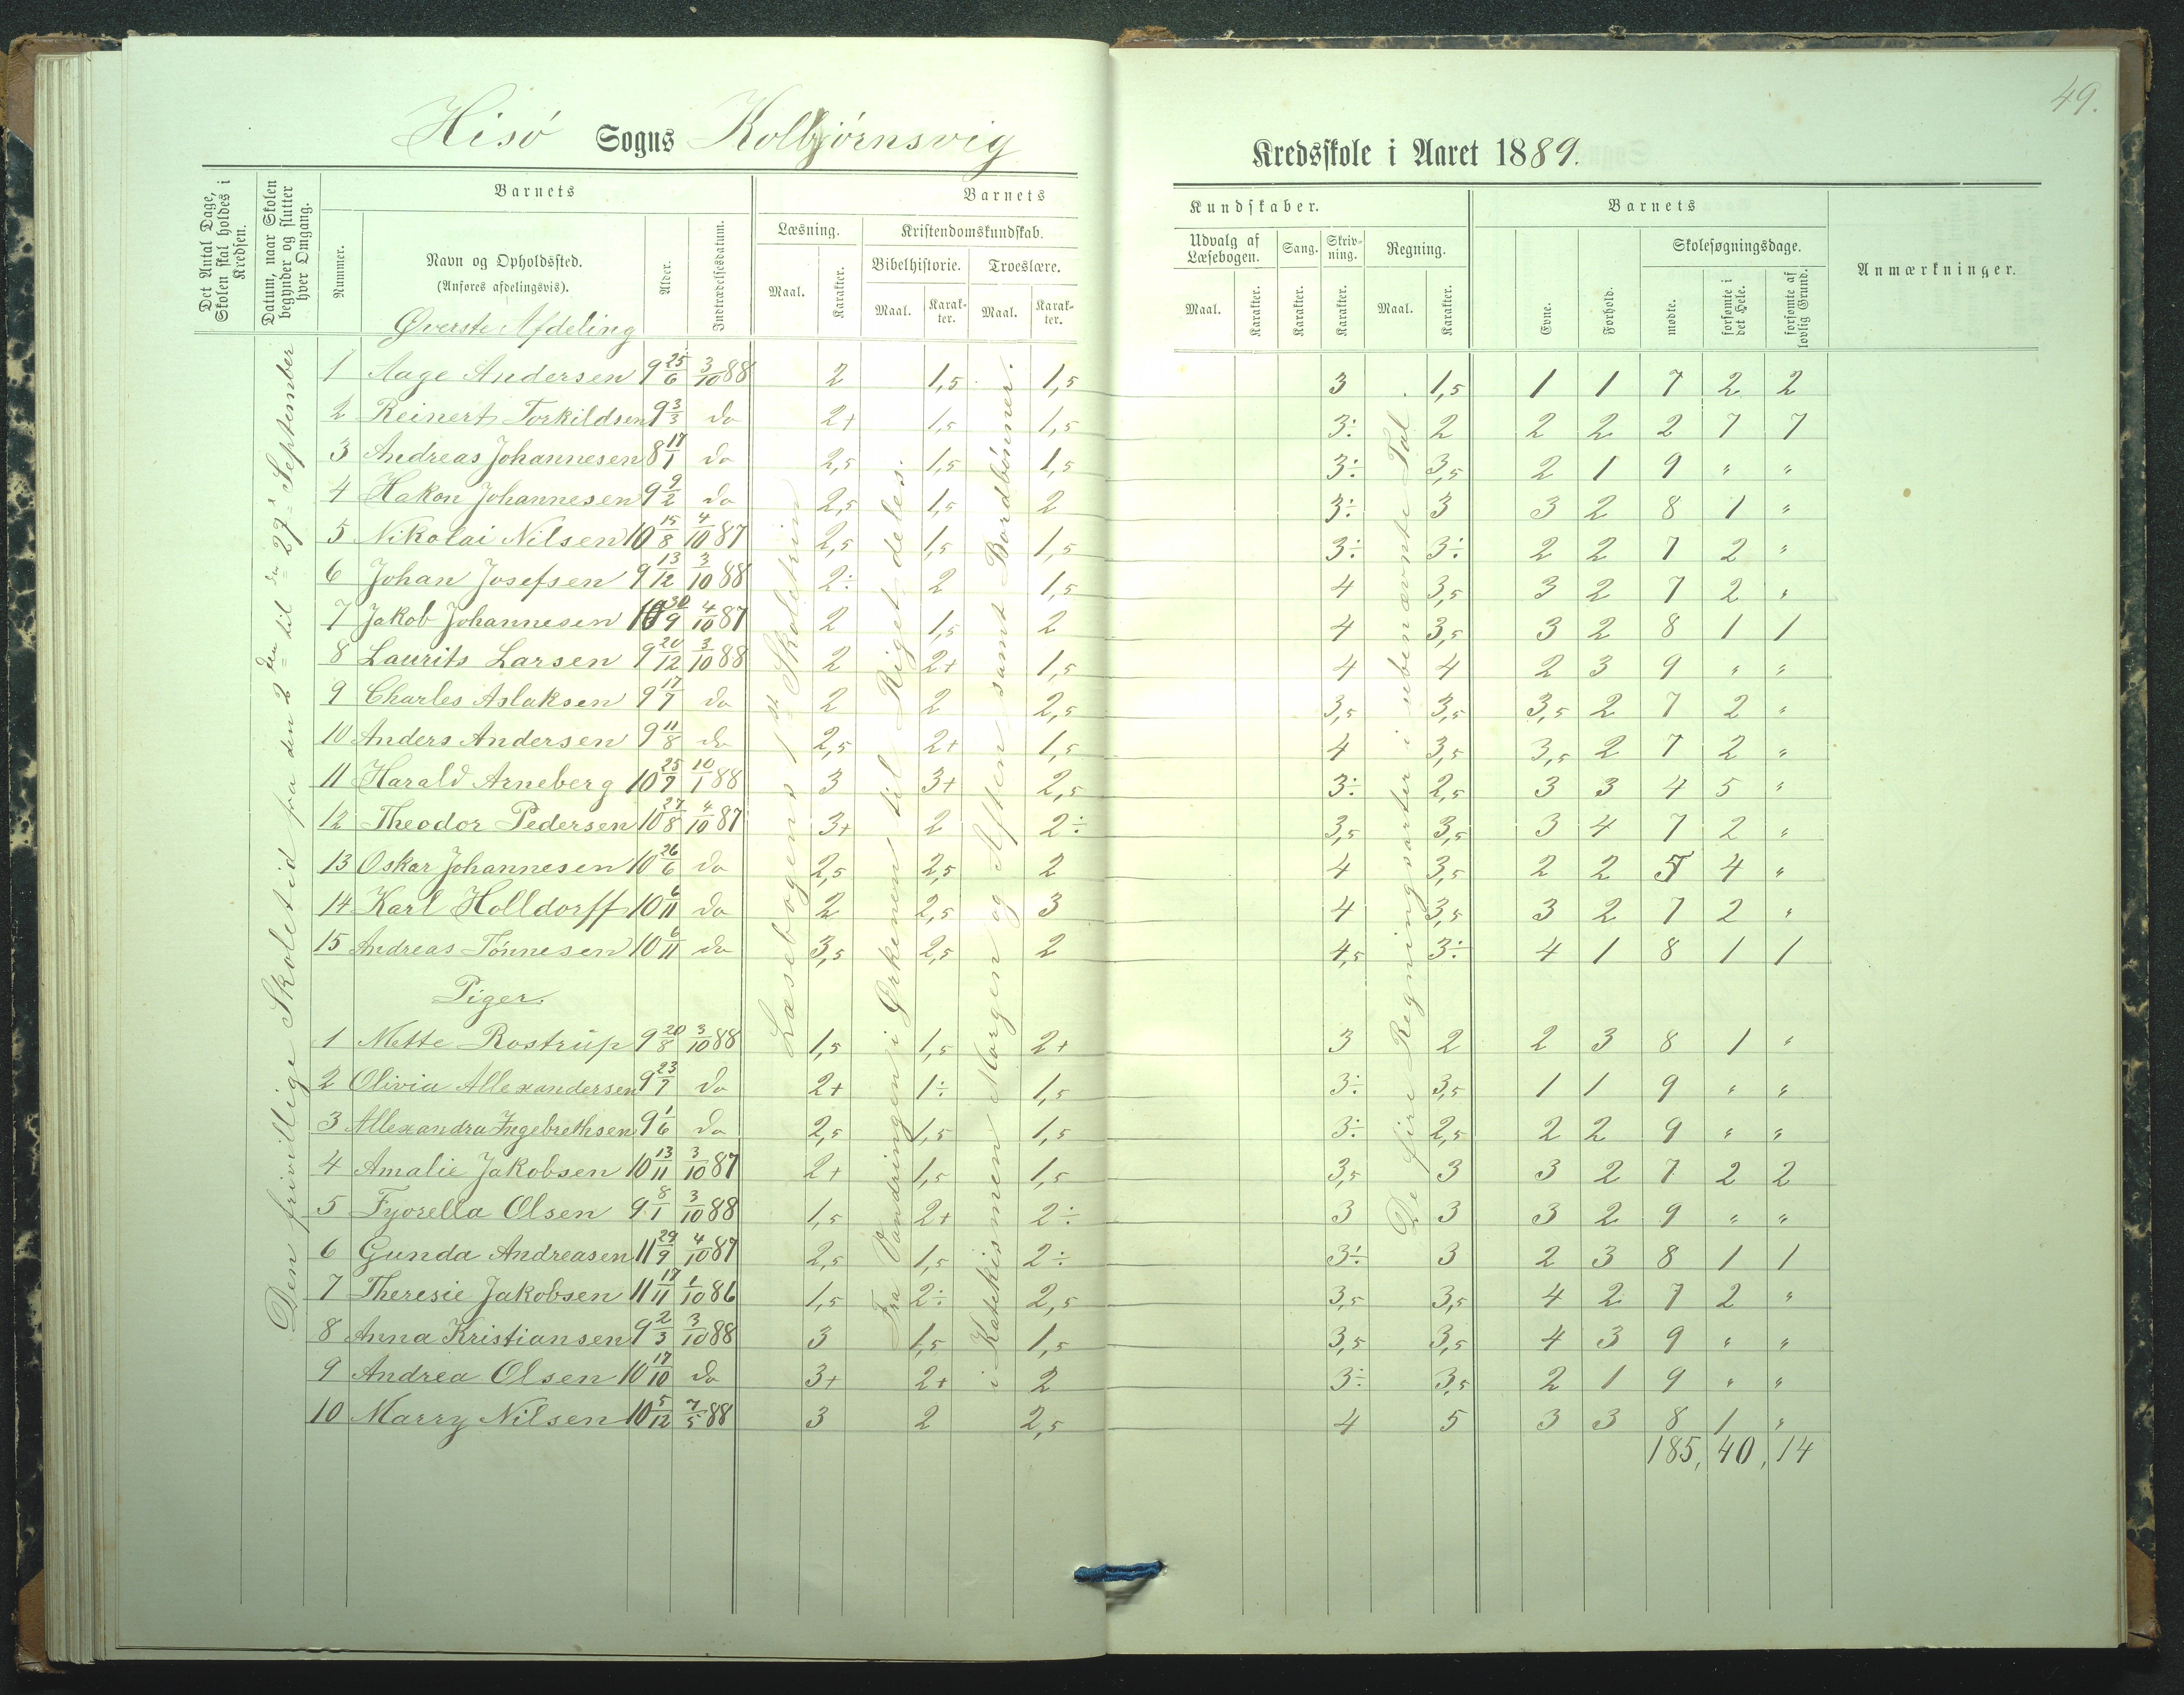 49.
Hisø Sogns Kolbjørnsvig
Kredsskole i Aaret 1889.
Det Antal Dage, Skolen skal holdes i Kredsen.
Datum, naar Skolen begynder og slutter hver Omgang.
Nummer.
Barnets
Navn og Opholdssted.
(Anføres afdelingsvis).
Alder.
Indtrædelsesdatum.
Barnets
Læsning.
Maal.
Karakter.
Kristendomskundskab.
Bibelhistorie. Troeslære.
Maal. Karakter. Maal. Karakter.
Kundskaber.
Udvalg af Læsebogen. Sang. Skrivning. Regning.
Maal. Karakter. Karakter. Karakter. Maal. Karakter.
Barnets
Evne. Forhold.
Skolesøgningsdage.
mødte. forsømte i det Hele. forsømte af lovlig Grund.
Anmærkninger.
Øverste Afdeling
Den frivillige Skoletid fra den 2den til den 29de September
Læsebogens 1ste Skoletrin
Fra Vandringen i Ørkenen til Riget deles.
i Katekismen Morgen og Aften samt Bordbønner.
De fire Regningsarter i ubenævnte Tal
1 Aage Andersen 9 25/6 3/10 88 2 1,5 1,5 3 1,5 1 1 7 2 2
2 Reinert Torkildsen 9 3/3 do 2+ 1,5 1,5 3÷ 2 2 2 2 7 7
3 Andreas Johannesen 8 17/1 do 2,5 1,5 1,5 3÷ 3,5 2 1 9 " "
4 Hakon Johannesen 9 9/2 do 2,5 1,5 2 3÷ 3 3 2 8 1 "
5 Nikolai Nilsen 10 15/8 4/10 87 2,5 1,5 1,5 3÷ 3÷ 2 2 7 2 "
6 Johan Josefsen 9 13/12 3/10 88 2÷ 2 1,5 4 3,5 3 2 7 2 "
7 Jakob Johannesen 10 30/9 4/10 87 2 1,5 2 4 3,5 3 2 8 1 1
8 Laurits Larsen 9 20/12 3/10 88 2 2+ 1,5 4 4 2 3 9 " "
9 Charles Aslaksen 9 17/7 do 2 2 2,5 3,5 3,5 3,5 2 7 2 "
10 Anders Andersen 9 11/8 do 2,5 2+ 1,5 4 3,5 3,5 2 7 2 "
11 Harald Arneberg 10 25/9 10/1 88 3 3+ 2,5 3÷ 2,5 3 3 4 5 "
12 Theodor Pedersen 10 27/8 4/10 87 3+ 2 2÷ 3,5 3,5 3 4 7 2 "
13 Oskar Johannesen 10 26/6 do 2,5 2,5 2 4 3,5 2 2 5 4 "
14 Karl Holldorff 10 6/11 do 2 2,5 3 4 3,5 3 2 7 2 "
15 Andreas Tønnesen 10 6/11 do 3,5 2,5 2 4,5 3÷ 4 1 8 1 1
Piger.
1 Mette Rostrup 9 20/8 3/10 88 1,5 1,5 2+ 3 2 2 3 8 1 "
2 Olivia Allexandersen 9 23/7 do 2+ 1÷ 1,5 3÷ 3,5 1 1 9 " "
3 Allexandra Ingebrethsen 9 1/6 do 2,5 1,5 1,5 3÷ 2,5 2 2 9 " "
4 Amalie Jakobsen 10 13/11 3/10 87 2+ 1,5 1,5 3,5 3 3 2 7 2 2
5 Fyorella Olsen 9 8/1 3/10 88 1,5 2+ 2÷ 3 3 3 2 9 " "
6 Gunda Andreasen 11 29/9 4/10 87 2,5 1,5 2÷ 3÷ 3 2 3 8 1 1
7 Theresie Jakobsen 11 17/11 1/10 86 1,5 2÷ 2,5 3,5 3,5 4 2 7 2 "
8 Anna Kristiansen 9 2/3 3/10 88 3 1,5 1,5 3,5 3,5 4 3 9 " "
9 Andrea Olsen 10 17/10 do 3+ 2+ 2 3÷ 3,5 2 1 9 " "
10 Marry Nilsen 10 5/12 7/5 88 3 2 2,5 4 5 3 3 8 1 "
185, 40, 14